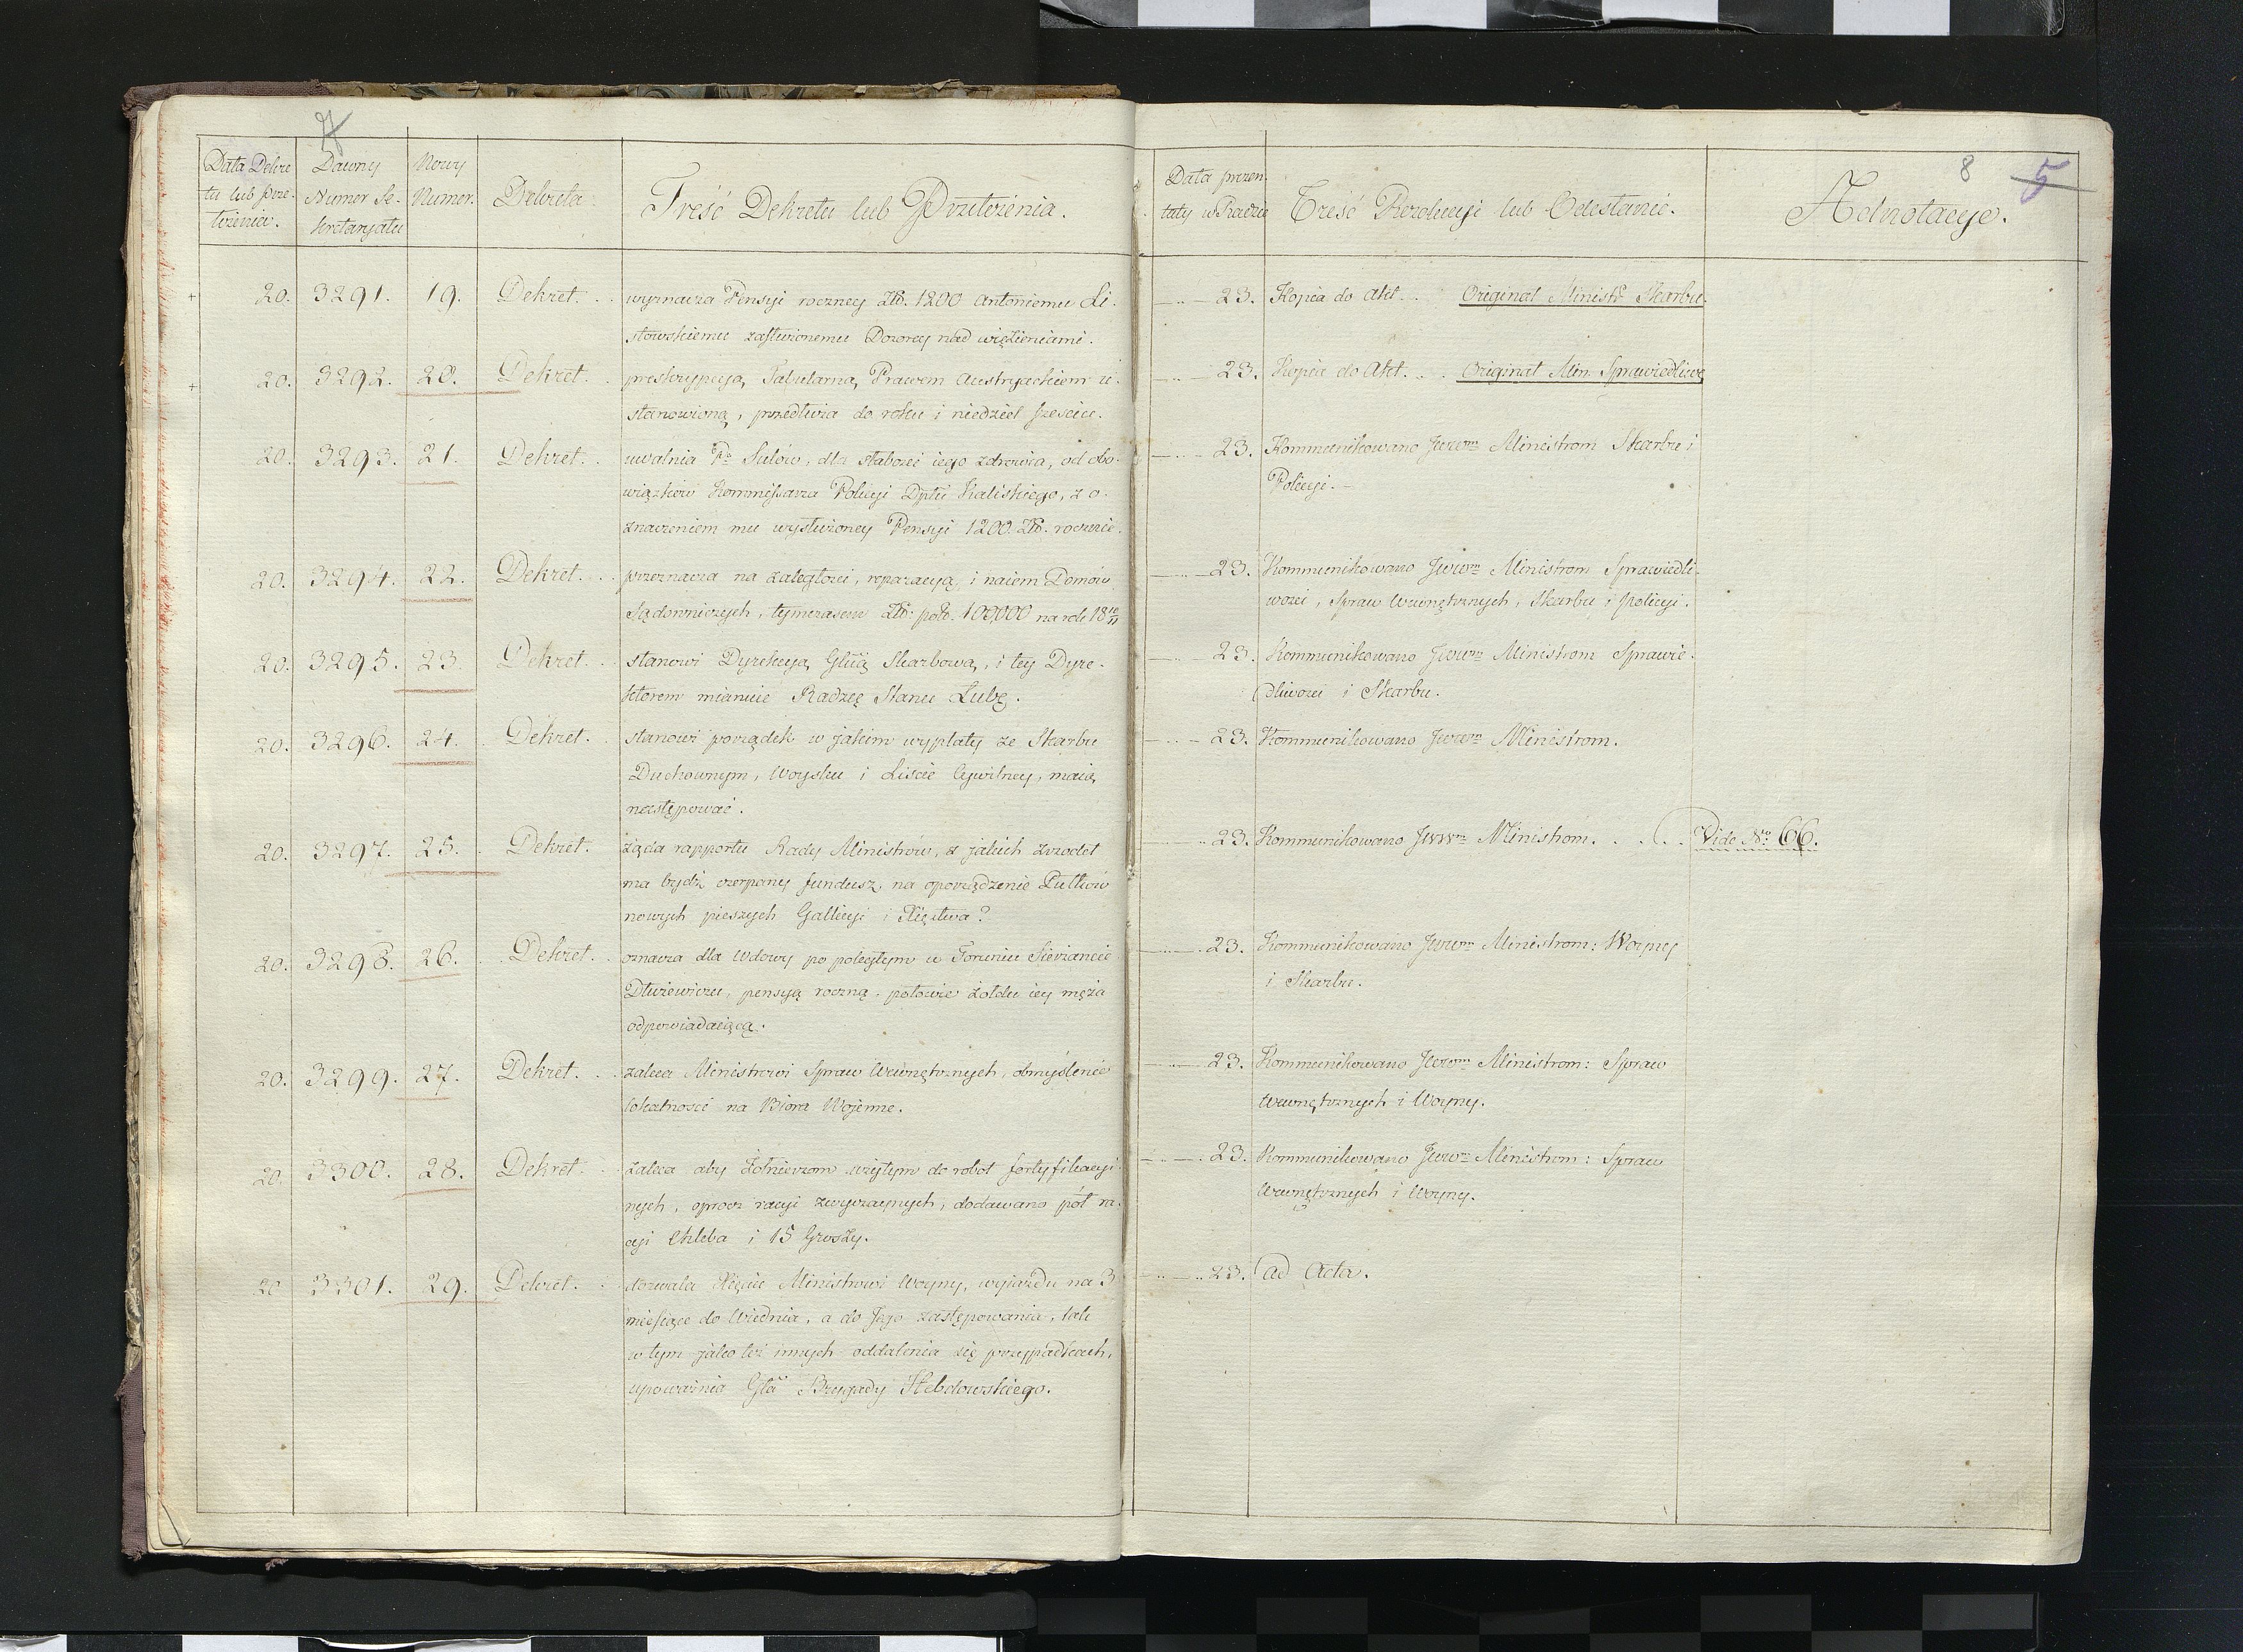 Data Dekre
tu lub prze-
łożenia.
Dawny
Numer Se-
kretaryatu
Nowy
Numer.
Dekreta
Treść Dekretu lub Przełożenia.
20. 3291. 19. Dekret. wyznacza Pensyi roczney Złł. 1200 Antoniemu Li-
stowskiemu zasłużonemu Dozorcy nad więzieniami.
20. 3292. 20. Dekret. preskrypcyą Tabularną Prawem Austryackiem u-
stanowioną, przedłuża do roku i niedziel sześciu.
20. 3293. 21. Dekret. uwalnia Pa Sulów, dla słabości iego zdrowia, od obo-
wiązków Kommissarza Policyi Dptu Kaliskiego, z o-
znaczeniem mu wysłużoney Pensyi 1200. Złł. rocznie.
20. 3294. 22. Dekret. przeznacza na zaległości, reparacyą, i naiem Domów
Sądowniczych, tymczasem Złł. pols. 100,000 na rok 18 10/11
20. 3295. 23. Dekret. stanowi Dyrekcyą Glną Skarbową, i tey Dyre-
ktorem mianuie Radzcę Stanu Łubę.
20. 3296. 24. Dekret. stanowi porządek w jakim wypłaty ze Skarbu
Duchownym, Woysku i Liście Cywilney, maią
następować.
20. 3297. 25. Dekret. żąda rapportu Rady Ministrów, z jakich zrodeł
ma bydź czerpany fundusz na oporządzenie Pułków
nowych pieszych Gallicyi i Xięstwa?
20. 3298. 26. Dekret. oznacza dla Wdowy po poległym w Toruniu Sierżancie
Dłużewiczu, pensyą roczną, połowie żołdu iey męża
odpowiadaiącą.
20. 3299. 27. Dekret. zaleca Ministrowi Spraw Wewnętrznych, obmyślenie
lokalności na Biora Wojenne.
20. 3300. 28. Dekret. zaleca aby Żołnierzom użytym do robot fortyfikacyi-
nych, oprocz racyi zwyczaynych, dodawano pół ra-
cyi Chleba i 15 Groszy.
20 3301. 29. Dekret. dozwala Xięciu Ministrowi Woyny, wyiazdu na 3
miesiące do Wiednia, a do Jego zastępowania, tak
w tym jako też innych oddalenia się przypadkach,
upoważnia Glła Brygady Hebdowskiego.
8 5
Data prezen-
taty w Radzie
Treść Rezolucyi lub Odesłanie.
Adnotacye.
23. Kopia do Akt. . Originał Ministr Skarbu.
23. Kopia do Akt. . . Originał Min: Sprawiedliwo
23. Kommunikowano JWWm Ministrom Skarbu i
Policyi.
23. Kommunikowano JWWm Ministrom Sprawiedli-
wości, Spraw Wewnętrznych, Skarbu i Policyi.
23. Kommunikowano JWWm Ministrom Sprawie-
dliwości i Skarbu.
23. Kommunikowano JWWm Ministrom.
23. Kommunikowano JWWm Ministrom. . . . Vide No 66.
23. Kommunikowano JWWm Ministrom: Woyny
i Skarbu.
23. Kommunikowano JWWm Ministrom: Spraw
Wewnętrznych i Woyny.
23. Kommunikowano JWWm Ministrom: Spraw
Wewnętrznych i Woyny.
23. ad Acta.